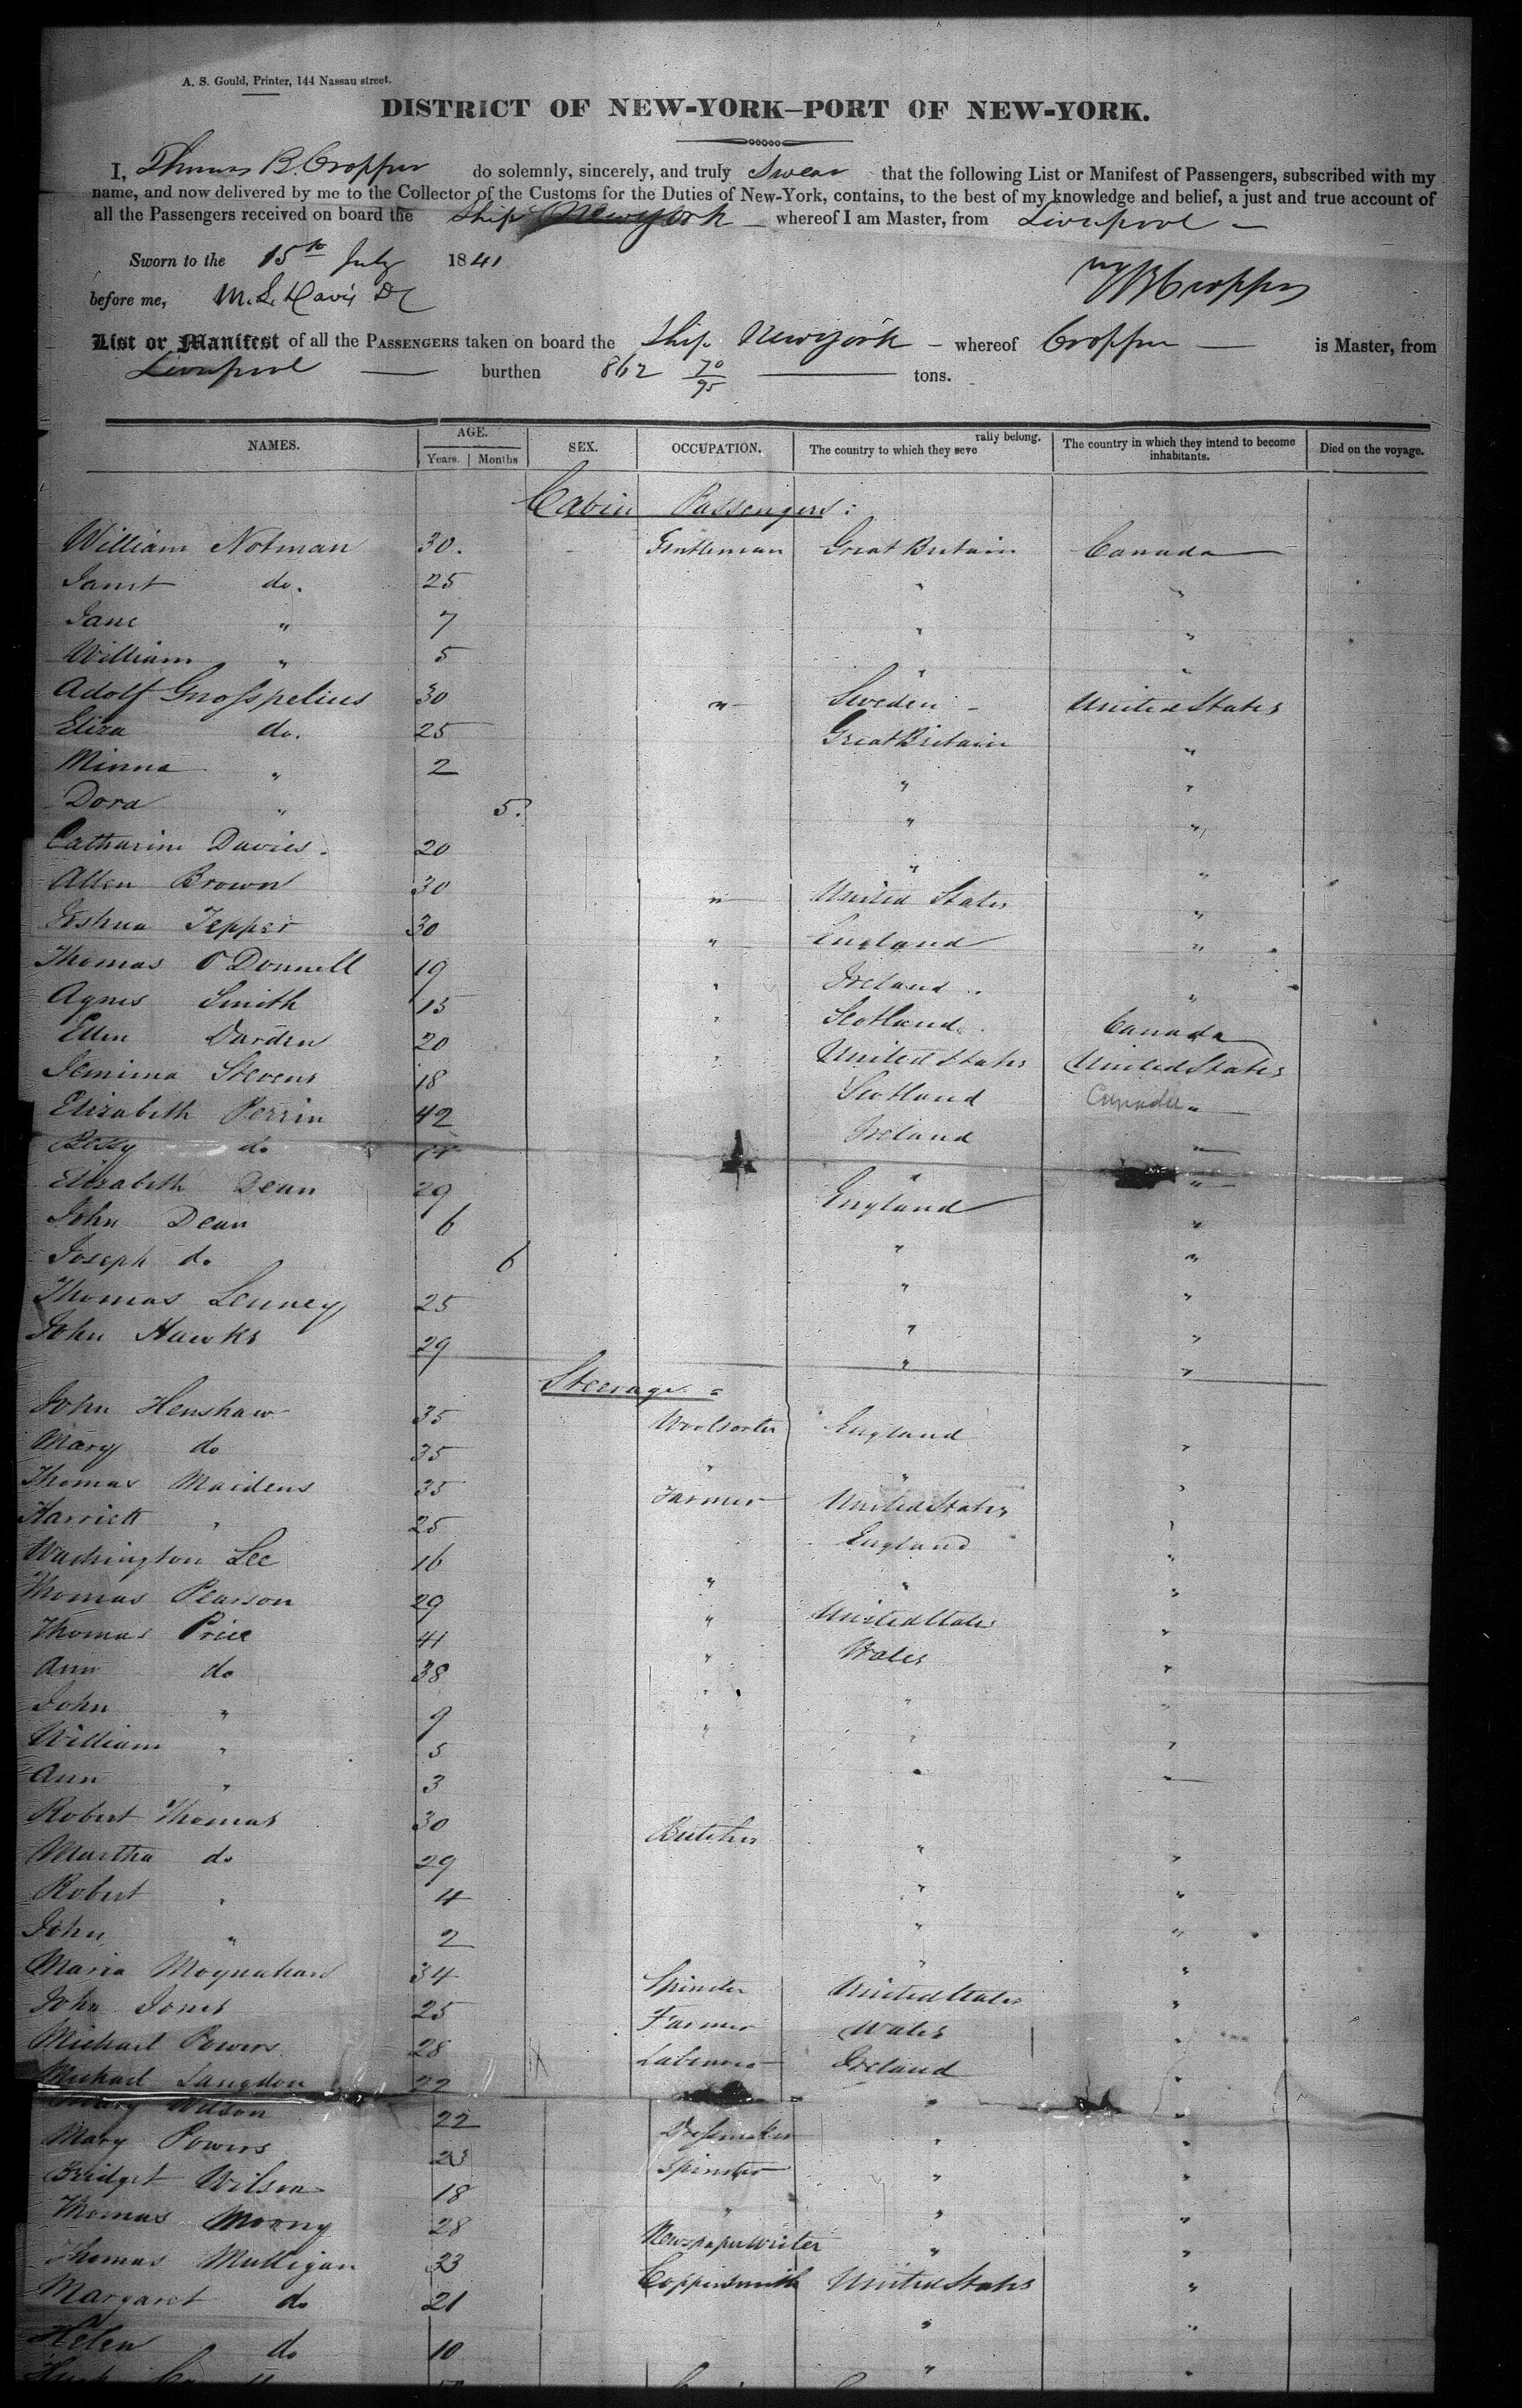 A. S. Gould, Printer, 144 Nassau street.
DISTRICT OF NEW-YORK—PORT OF NEW-YORK.
I, Thomas B. Cropper do solemnly, sincerely, and truly Swear that the following List or Manifest of Passengers, subscribed with my
name, and now delivered by me to the Collector of the Customs for the Duties of New-York, contains, to the best of my knowledge and belief, a just and true account of
all the Passengers received on board the Ship New York — whereof I am Master, from Liverpool —
Sworn to the 15th July 1841
T B Cropper
before me, M. L. Davis
List or Manifest of all the PASSENGERS taken on board the Ship New York — whereof Cropper — is Master, from
Liverpool — burthen 862 70/95 — tons.
NAMES. AGE. Years. Months SEX. OCCUPATION. The country to which they severally belong. The country in which they intend to become inhabitants. Died on the voyage.
Cabin Passengers:
William Notman 30. Gentleman Great Britain Canada
Janet do. 25 " "
Jane " 7 " "
William " 5 " "
Adolf Grosspelius 30 " Sweden United States
Eliza do. 25 Great Britain "
Minna " 2 " "
Dora " 5. " "
Catharine Davies 20 " "
Allen Brown 30 " United States "
Joshua Tepper 30 " England "
Thomas O'Donnell 19 " Ireland "
Agnes Smith 15 " Scotland Canada
Ellen Darden 20 " United States United States
Jemima Stevens 18 Scotland Canada "
Elizabeth Perrin 42 Ireland "
Betsy do " "
Elizabeth Dean 29 England "
John Dean 6 " "
Joseph do 6 " "
Thomas Lenney 25 " "
John Hawks 29 " "
Steerage
John Henshaw 35 Woolsorter England "
Mary do 35 " " "
Thomas Maidens 35 Farmer United States "
Harriett " 25 England "
Washington Lee 16 " " "
Thomas Pearson 29 " United States "
Thomas Price 41 " Wales "
Ann do 38 " " "
John " 9 " " "
William " 5 " "
Ann " 3
Robert Thomas 30 Butcher " "
Martha do 29 " "
Robert " 4 " "
John " 2 " "
Maria Moynahan 34 Spinster United States "
John Jones 25 Farmer Wales "
Michael Powers 28 Labourer Ireland "
Michael Langdon 22 " "
Mary Wilson 22 Dressmaker " "
Mary Powers 23 Spinster " "
Bridget Wilson 18 " " "
Thomas Moony 28 Newspaper Writer " "
Thomas Mulligan 33 Coppersmith United States "
Margaret do 21 " "
Helen do 10 " "